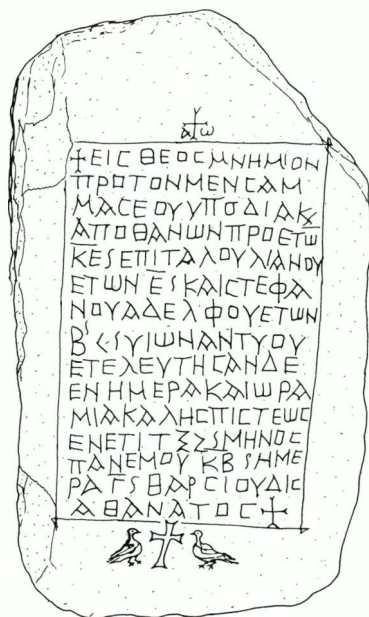 α ω
☩ΕΙC ΘΕΟC ΜΝΗΜΙΟΝ
ΠΡΟΤΟΝΜΕΝCΑΜ
ΜΑCΕΟΥΥΠΟΔΙΑΚ
ΑΠΟΘΑΝΩΝΠΡΟΕΤΩ
ΚΕSΕΠΙΤΑΛΟΥΛΙΑΝΟΥ
ΕΤΩΝ ΕSΚΑΙCΤΕΦΑ
ΝΟΥΑΔΕΛΦΟΥΕΤΩΝ
ΒS <SΥΙΩΝΑΝΤΥΟΥ
ΕΤΕΛΕΥΤΗCΑΝΔΕ
ΕΝΗΜΕΡΑΚΑΙΩΡΑ
ΜΙΑΚΑΛΗCΠΙCΤΕΩC
ΕΝΕΤΙΤΞΖSΜΗΝΟC
ΠΑΝΕΜΟΥ ΚΒSΗΜΕ
ΡΑΓSΘΑΡCΙΟΥΔΙC
ΑΘΑΝΑΤΟC☩